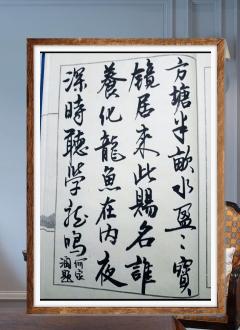 方塘半畝水盈〻寶
鏡居来此賜名誰
養化龍魚在内夜
深時聽學龙鳴
何家
題